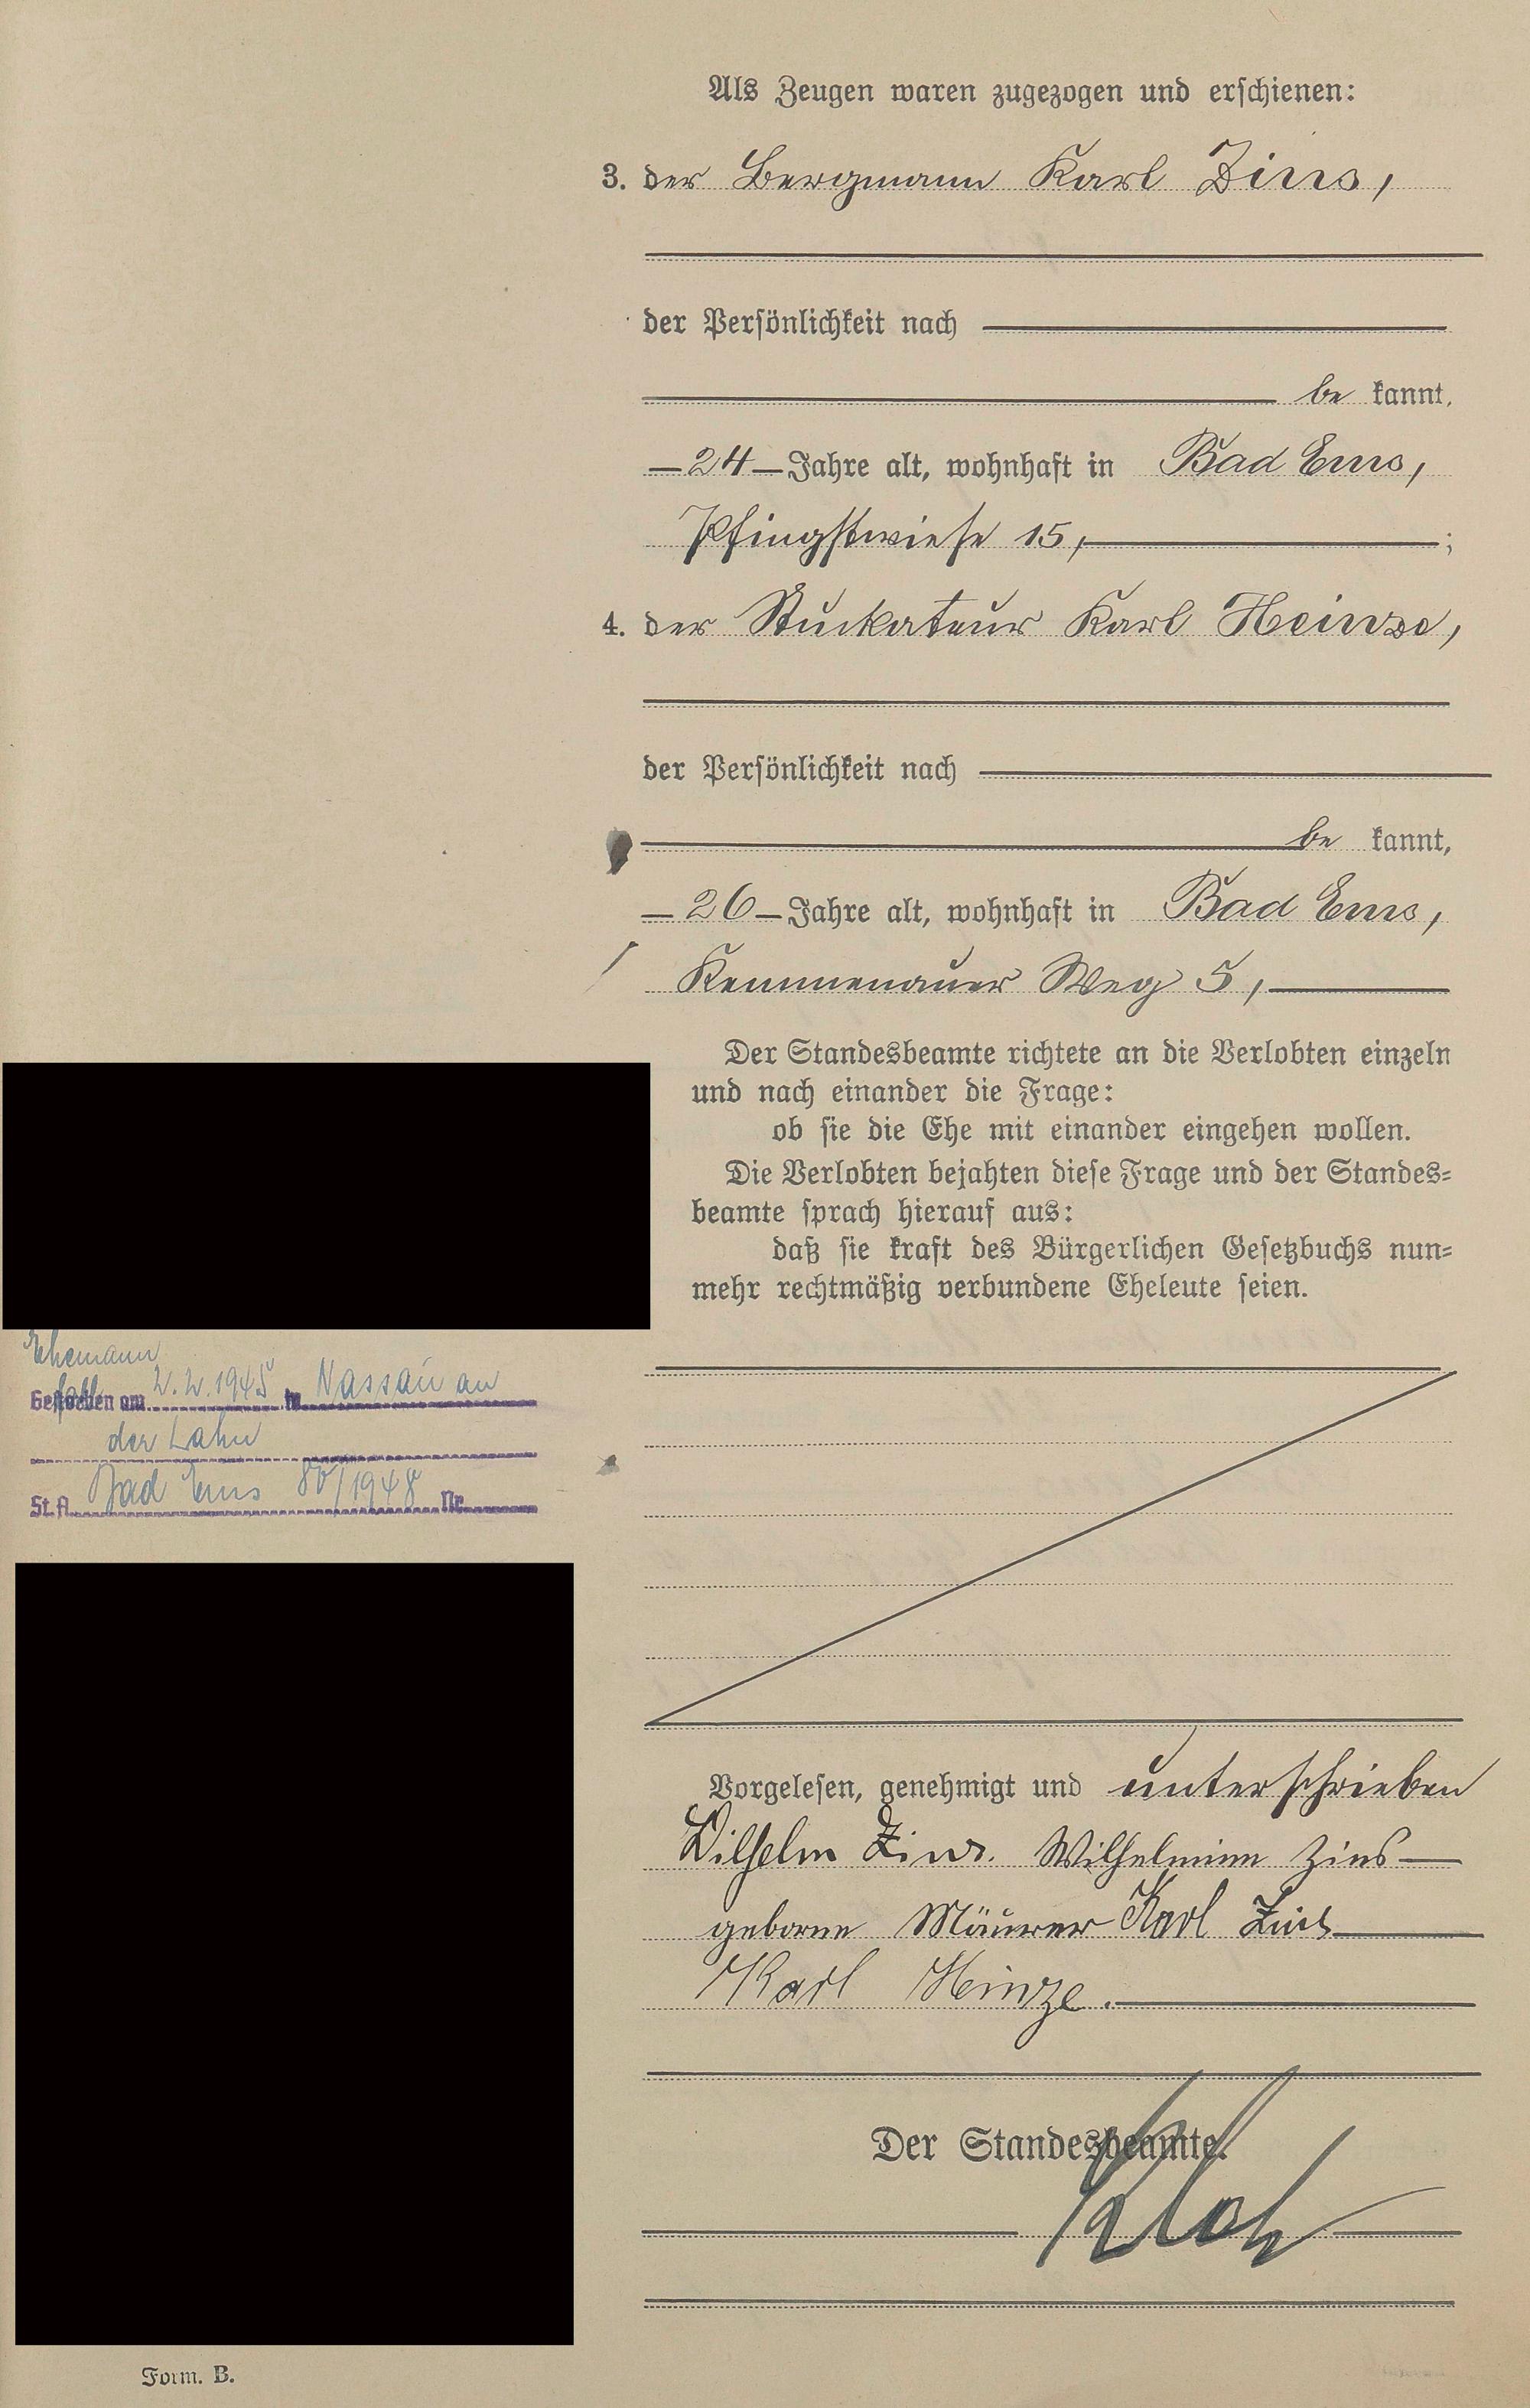 Als Zeugen waren zugezogen und erschienen:
3. der Bergmann Karl Zins,
der Persönlichkeit nach
be kannt,
24 Jahre alt, wohnhaft in Bad Ems,
Pfingstwiese 15, ;
4. der Stuckateur Karl Heinze,
der Persönlichkeit nach
be kannt,
26 Jahre alt, wohnhaft in Bad Ems,
Kemmenauer Weg 5,
Der Standesbeamte richtete an die Verlobten einzeln
und nach einander die Frage:
ob sie die Ehe mit einander eingehen wollen.
Die Verlobten bejahten diese Frage und der Standes=
beamte sprach hierauf aus:
daß sie kraft des Bürgerlichen Gesetzbuchs nun=
mehr rechtmäßig verbundene Eheleute seien.
Ehemann
Gestorben am 2.2.1945 in Nassau an
der Lahn
St.A. Bad Ems 80/1948 Nr.
Vorgelesen, genehmigt und unterschrieben
Wilhelm Zins. Wilhelmine Zins
geborne Mäurer Karl Zins
Karl Heinze.
Der Standesbeamte.
Form. B.